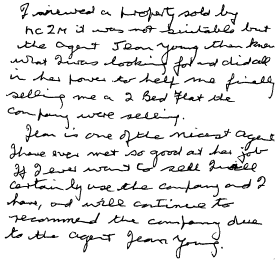 I viewed a property sold by
KCZM it was not suitable but
the agent Jean Young then knew
what I was looking for and did all
in her power to help me finally
selling me a 2 Bed Flat the
company were selling.
Jean is one of the nicest agent
I have ever met so good at her job
If I ever want to sell I will
certainly use the company and I
have, and will continue to
recommend the company due
to the agent Jean Young.